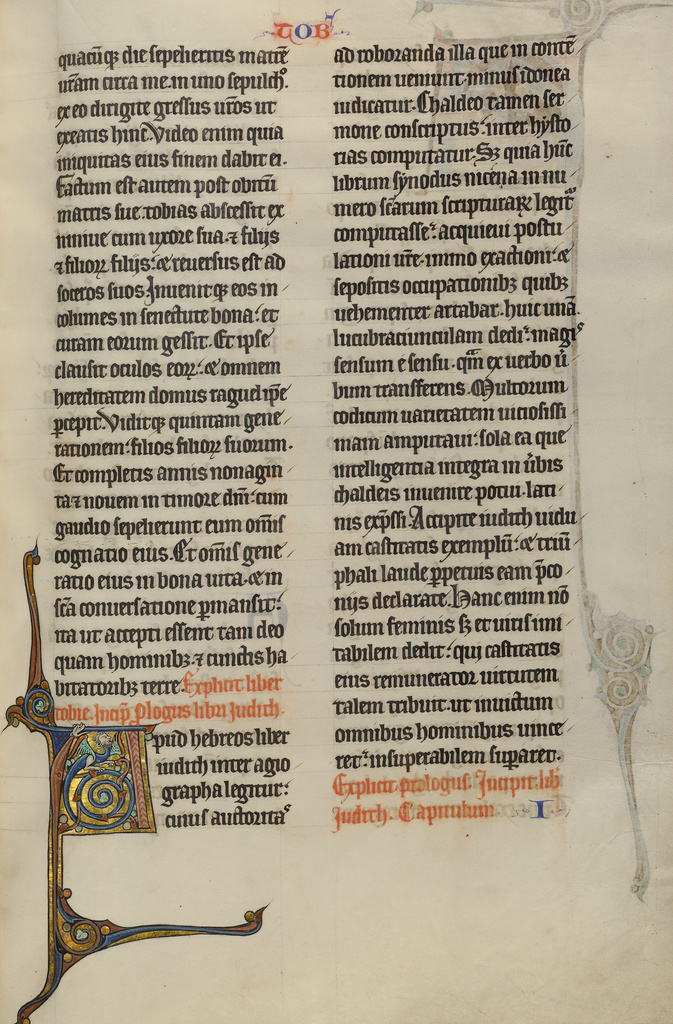 TOB
quacūqꝫ die sepelieritis matrē
ur̄am circa me in uno sepulchº.
ex eo dirigite gressus ur̄os ut
exeatis hinc. Video enim quia
iniquitas eius finem dabit ei.
Factum est autem post obitū
matris sue. tobias abscessit ex
niniue cum uxore sua. ⁊ filijs
⁊ filioꝝ filijs: & reuersus est ad
soceros suos. Inuenitqꝫ eos in
columes in senectute bona: et
curam eorum gessit. Et ipse
clausit oculos eoꝝ: & omnem
hereditatem domus raguel ip̄e
ꝑcepit. Viditqꝫ quintam gene
rationem: filios filioꝝ suorum.
Et completis annis nonagin
ta ⁊ nouem in timore dn̄i: cum
gaudio sepelierunt eum om̄is
cognatio eius. Et om̄is gene
ratio eius in bona uita. & in
sc̄a conuersatione ꝑmansit:
ita ut accepti essent tam deo
quam hominibꝫ. ⁊ cunctis ha
bitatoribꝫ terre. Explicit liber
tobie. Incip̄ ꝓlogus libri Judith.
Apud hebreos liber
iudith inter agio
grapha legitur:
cuius auctoritaˢ
ad roboranda illa que in contē
tionem ueniunt. minus idonea
iudicatur. Chaldeo tamen ser
mone conscriptus: inter hysto
rias computatur. Sꝫ quia hūc
librum synodus nicena in nu
mero sc̄arum scripturaꝝ legit̃
computasse: acquieui postu
lationi ur̄e. immo exactioni: &
sepositis occupationibꝫ quibꝫ
uehementer artabar. huic unā
lucubraciunculam dedi: magiˢ
sensum e sensu. qm̄ ex uerbo ū
bum transferens. Multorum
codicum uarietatem uiciosissi
mam amputaui: sola ea que
intelligentia integra in ūbis
chaldeis inuenire potui. lati
nis exp̄ssi. Accipite iudith uidu
am castitatis exemplū: & triū
phali laude ꝑpetuis eam p̄co
nijs declarate. Hanc enim nō
solum feminis sꝫ et uiris imi
tabilem dedit: qui castitatis
eius remunerator uirtutem
talem tribuit. ut inuictum
omnibus hominibus uince
ret: insuperabilem suꝑaret.
Explicit prologus. Incipit lib
Judith. Capitulum I